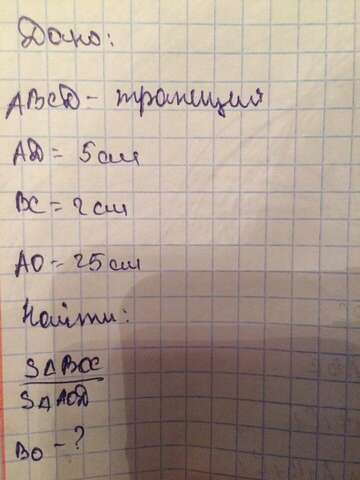 Дано:
ABCD - трапеция
AD = 5см
BC = 2см
AO = 25см
Найти:
S△BOC
S△AOD
BO - ?